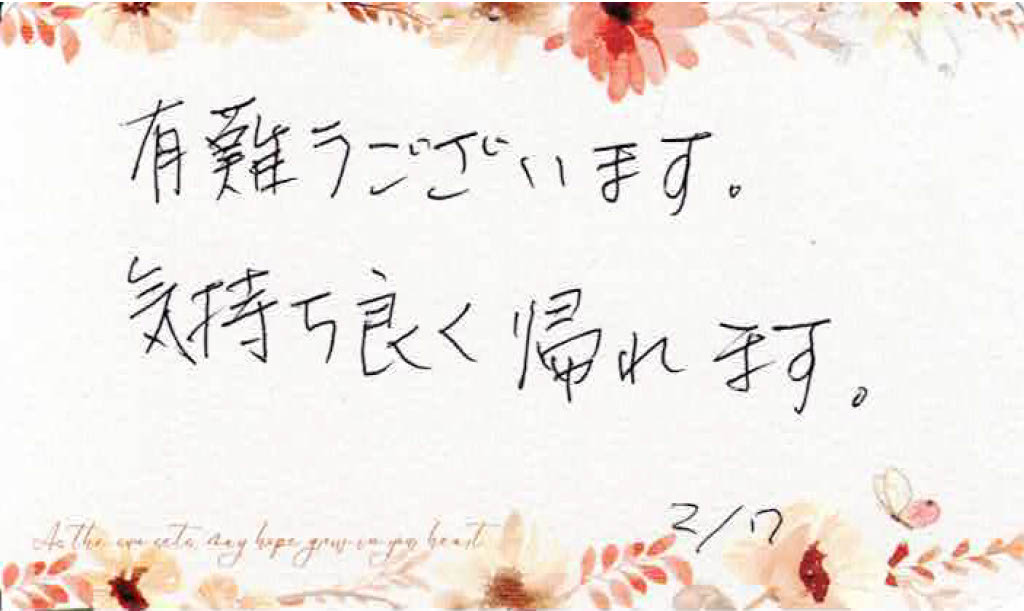 有難うございます。
気持ち良く帰れます。
2/17
As the sun sets, may hope grow in your heart